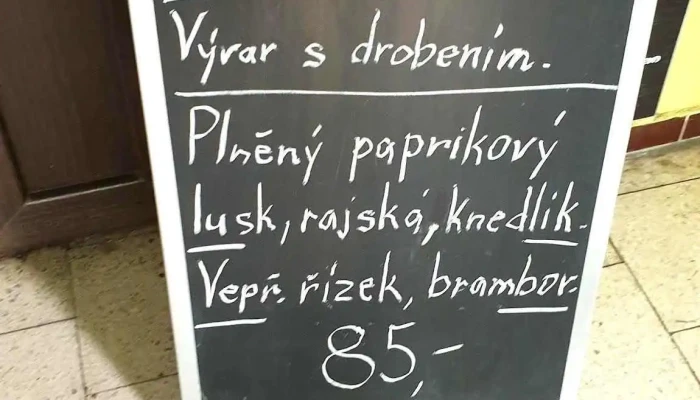 Vývar s drobením.
Plněný paprikový
lusk, rajská, knedlík.
Vepř. řízek, brambor.
85,-